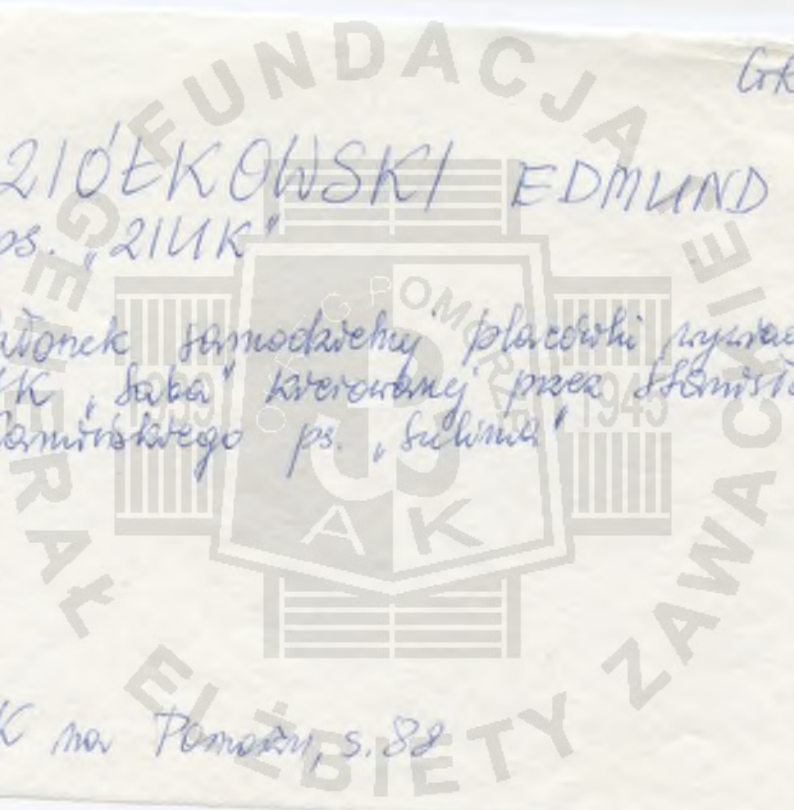 ZIÓŁKOWSKI EDMUND
ps. „ZIUK"
członek samodzielnej placówki wywiad
AK „Saba" kierowanej przez Stanisła
Kamińskiego ps. „Sulima"
AK na Pomorzu, s. 88
FUNDACJA
GENERAŁ ELŻBIETY ZAWACKIEJ
OKRĘG POMORZE
1939 1945
AK